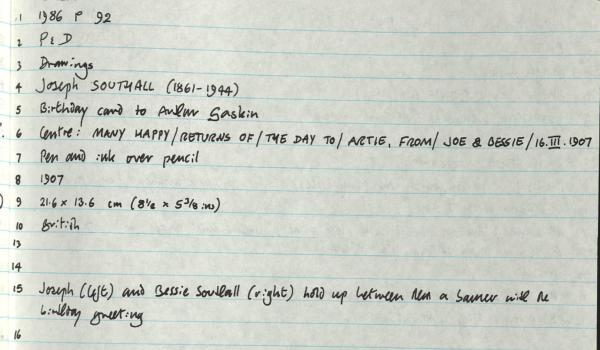 1 1986 P 92
2 P & D
3 Drawings
4 Joseph SOUTHALL (1861-1944)
5 Birthday card to Arthur Gaskin
6 Centre: MANY HAPPY/RETURNS OF/THE DAY TO/ARTIE, FROM/JOE & BESSIE/16.III.1907
7 Pen and ink over pencil
8 1907
9 21.6 x 13.6 cm (8½ x 5 3/8 ins)
10 British
13
14
15 Joseph (left) and Bessie Southall (right) hold up between them a banner with the
birthday greeting
16